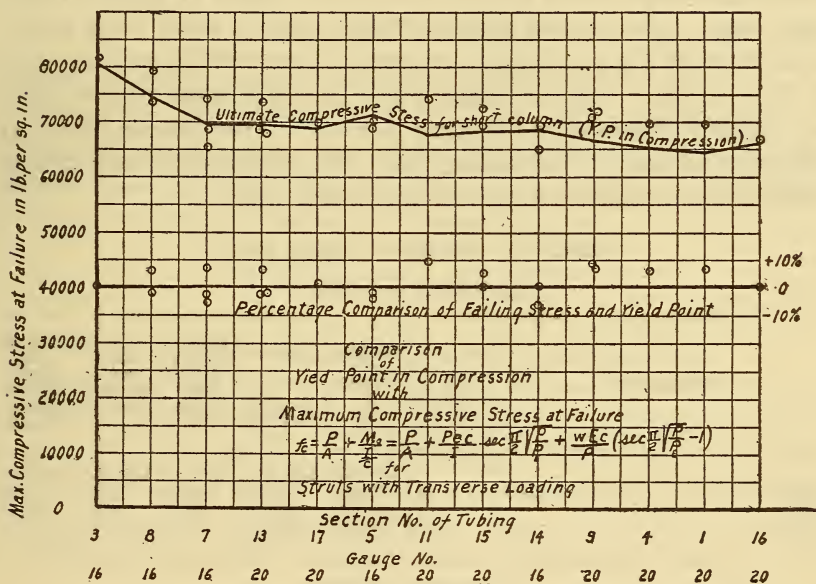 Max. Compressive Stress at Failure in lb. per sq. in.
80000
70000
60000
50000
40000
30000
20000
10000
0
Ultimate Compressive Stess for short column. (Y.P. in Compression)
+10%
0
-10%
Percentage Comparison of Failing Stress and Yield Point
Comparison
of
Yied Point in Compression
with
Maximum Compressive Stress at Failure
fc = P/A + M2/(I/c) = P/A + Pec/I sec π/2 √P/P + wEc/P (sec π/2 √P/P -1)
for
Struts with Transverse Loading
Section No. of Tubing
3 8 7 13 17 5 11 15 14 9 4 1 16
Gauge No.
16 16 16 20 20 16 20 20 16 20 20 20 20